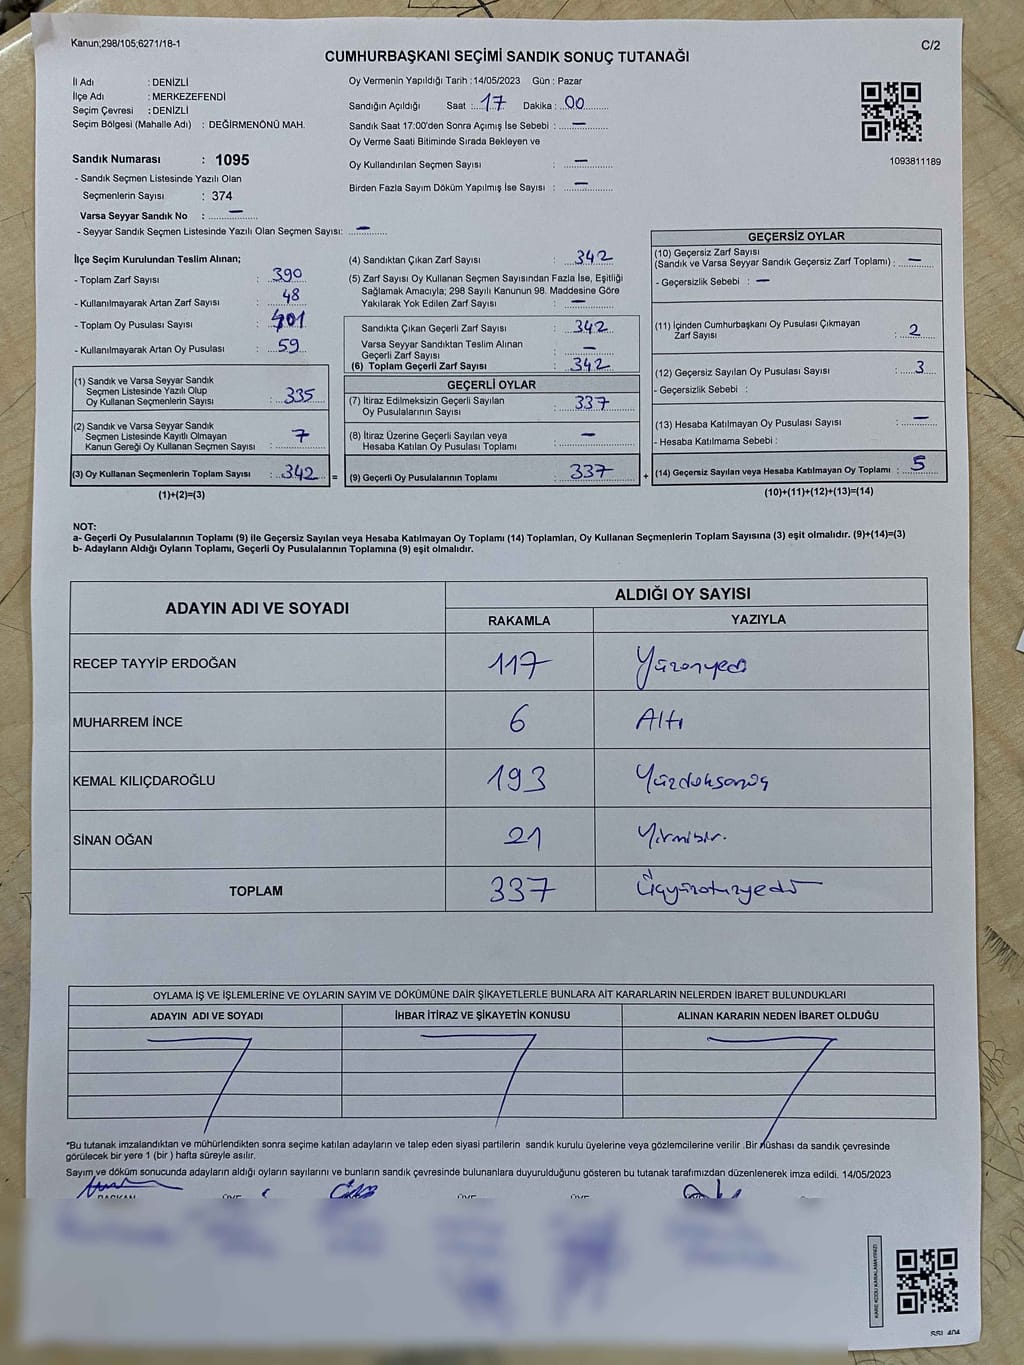 Kanun;298/105;6271/18-1
C/2
CUMHURBAŞKANI SEÇİMİ SANDIK SONUÇ TUTANAĞI
İl Adı : DENİZLİ
İlçe Adı : MERKEZEFENDİ
Seçim Çevresi : DENİZLİ
Seçim Bölgesi (Mahalle Adı) : DEĞİRMENÖNÜ MAH.
Sandık Numarası : 1095
- Sandık Seçmen Listesinde Yazılı Olan
Seçmenlerin Sayısı : 374
Varsa Seyyar Sandık No : —
- Seyyar Sandık Seçmen Listesinde Yazılı Olan Seçmen Sayısı: —
Oy Vermenin Yapıldığı Tarih : 14/05/2023 Gün : Pazar
Sandığın Açıldığı Saat : 17 Dakika : 00
Sandık Saat 17:00'den Sonra Açımış İse Sebebi : —
Oy Verme Saati Bitiminde Sırada Bekleyen ve
Oy Kullandırılan Seçmen Sayısı : —
Birden Fazla Sayım Döküm Yapılmış İse Sayısı : —
1093811189
İlçe Seçim Kurulundan Teslim Alınan;
- Toplam Zarf Sayısı : 390
- Kullanılmayarak Artan Zarf Sayısı : 48
- Toplam Oy Pusulası Sayısı : 401
- Kullanılmayarak Artan Oy Pusulası : 59
(1) Sandık ve Varsa Seyyar Sandık
Seçmen Listesinde Yazılı Olup
Oy Kullanan Seçmenlerin Sayısı : 335
(2) Sandık ve Varsa Seyyar Sandık
Seçmen Listesinde Kayıtlı Olmayan
Kanun Gereği Oy Kullanan Seçmen Sayısı : 7
(3) Oy Kullanan Seçmenlerin Toplam Sayısı : 342 =
(1)+(2)=(3)
(4) Sandıktan Çıkan Zarf Sayısı : 342
(5) Zarf Sayısı Oy Kullanan Seçmen Sayısından Fazla İse, Eşitliği
Sağlamak Amacıyla; 298 Sayılı Kanunun 98. Maddesine Göre
Yakılarak Yok Edilen Zarf Sayısı : —
Sandıkta Çıkan Geçerli Zarf Sayısı : 342
Varsa Seyyar Sandıktan Teslim Alınan
Geçerli Zarf Sayısı : —
(6) Toplam Geçerli Zarf Sayısı : 342
GEÇERLİ OYLAR
(7) İtiraz Edilmeksizin Geçerli Sayılan
Oy Pusulalarının Sayısı : 337
(8) İtiraz Üzerine Geçerli Sayılan veya
Hesaba Katılan Oy Pusulası Toplamı : —
(9) Geçerli Oy Pusulalarının Toplamı : 337 +
GEÇERSİZ OYLAR
(10) Geçersiz Zarf Sayısı
(Sandık ve Varsa Seyyar Sandık Geçersiz Zarf Toplamı) : —
- Geçersizlik Sebebi : —
(11) İçinden Cumhurbaşkanı Oy Pusulası Çıkmayan
Zarf Sayısı : 2
(12) Geçersiz Sayılan Oy Pusulası Sayısı : 3
- Geçersizlik Sebebi :
(13) Hesaba Katılmayan Oy Pusulası Sayısı : —
- Hesaba Katılmama Sebebi :
(14) Geçersiz Sayılan veya Hesaba Katılmayan Oy Toplamı : 5
(10)+(11)+(12)+(13)=(14)
NOT:
a- Geçerli Oy Pusulalarının Toplamı (9) ile Geçersiz Sayılan veya Hesaba Katılmayan Oy Toplamı (14) Toplamları, Oy Kullanan Seçmenlerin Toplam Sayısına (3) eşit olmalıdır. (9)+(14)=(3)
b- Adayların Aldığı Oyların Toplamı, Geçerli Oy Pusulalarının Toplamına (9) eşit olmalıdır.
ADAYIN ADI VE SOYADI
ALDIĞI OY SAYISI
RAKAMLA YAZIYLA
RECEP TAYYİP ERDOĞAN 117 Yüzonyedi
MUHARREM İNCE 6 Altı
KEMAL KILIÇDAROĞLU 193 Yüzdoksanüç
SİNAN OĞAN 21 Yirmibir.
TOPLAM 337 Üçyüzotuzyedi
OYLAMA İŞ VE İŞLEMLERİNE VE OYLARIN SAYIM VE DÖKÜMÜNE DAİR ŞİKAYETLERLE BUNLARA AİT KARARLARIN NELERDEN İBARET BULUNDUKLARI
ADAYIN ADI VE SOYADI
İHBAR İTİRAZ VE ŞİKAYETİN KONUSU
ALINAN KARARIN NEDEN İBARET OLDUĞU
*Bu tutanak imzalandıktan ve mühürlendikten sonra seçime katılan adayların ve talep eden siyasi partilerin sandık kurulu üyelerine veya gözlemcilerine verilir .Bir nüshası da sandık çevresinde
görülecek bir yere 1 (bir ) hafta süreyle asılır.
Sayım ve döküm sonucunda adayların aldığı oyların sayılarını ve bunların sandık çevresinde bulunanlara duyurulduğunu gösteren bu tutanak tarafımızdan düzenlenerek imza edildi. 14/05/2023
BAŞKAN ÜYE ÜYE ÜYE
KARE KODU KARALAMAYINIZ!
SSI 404